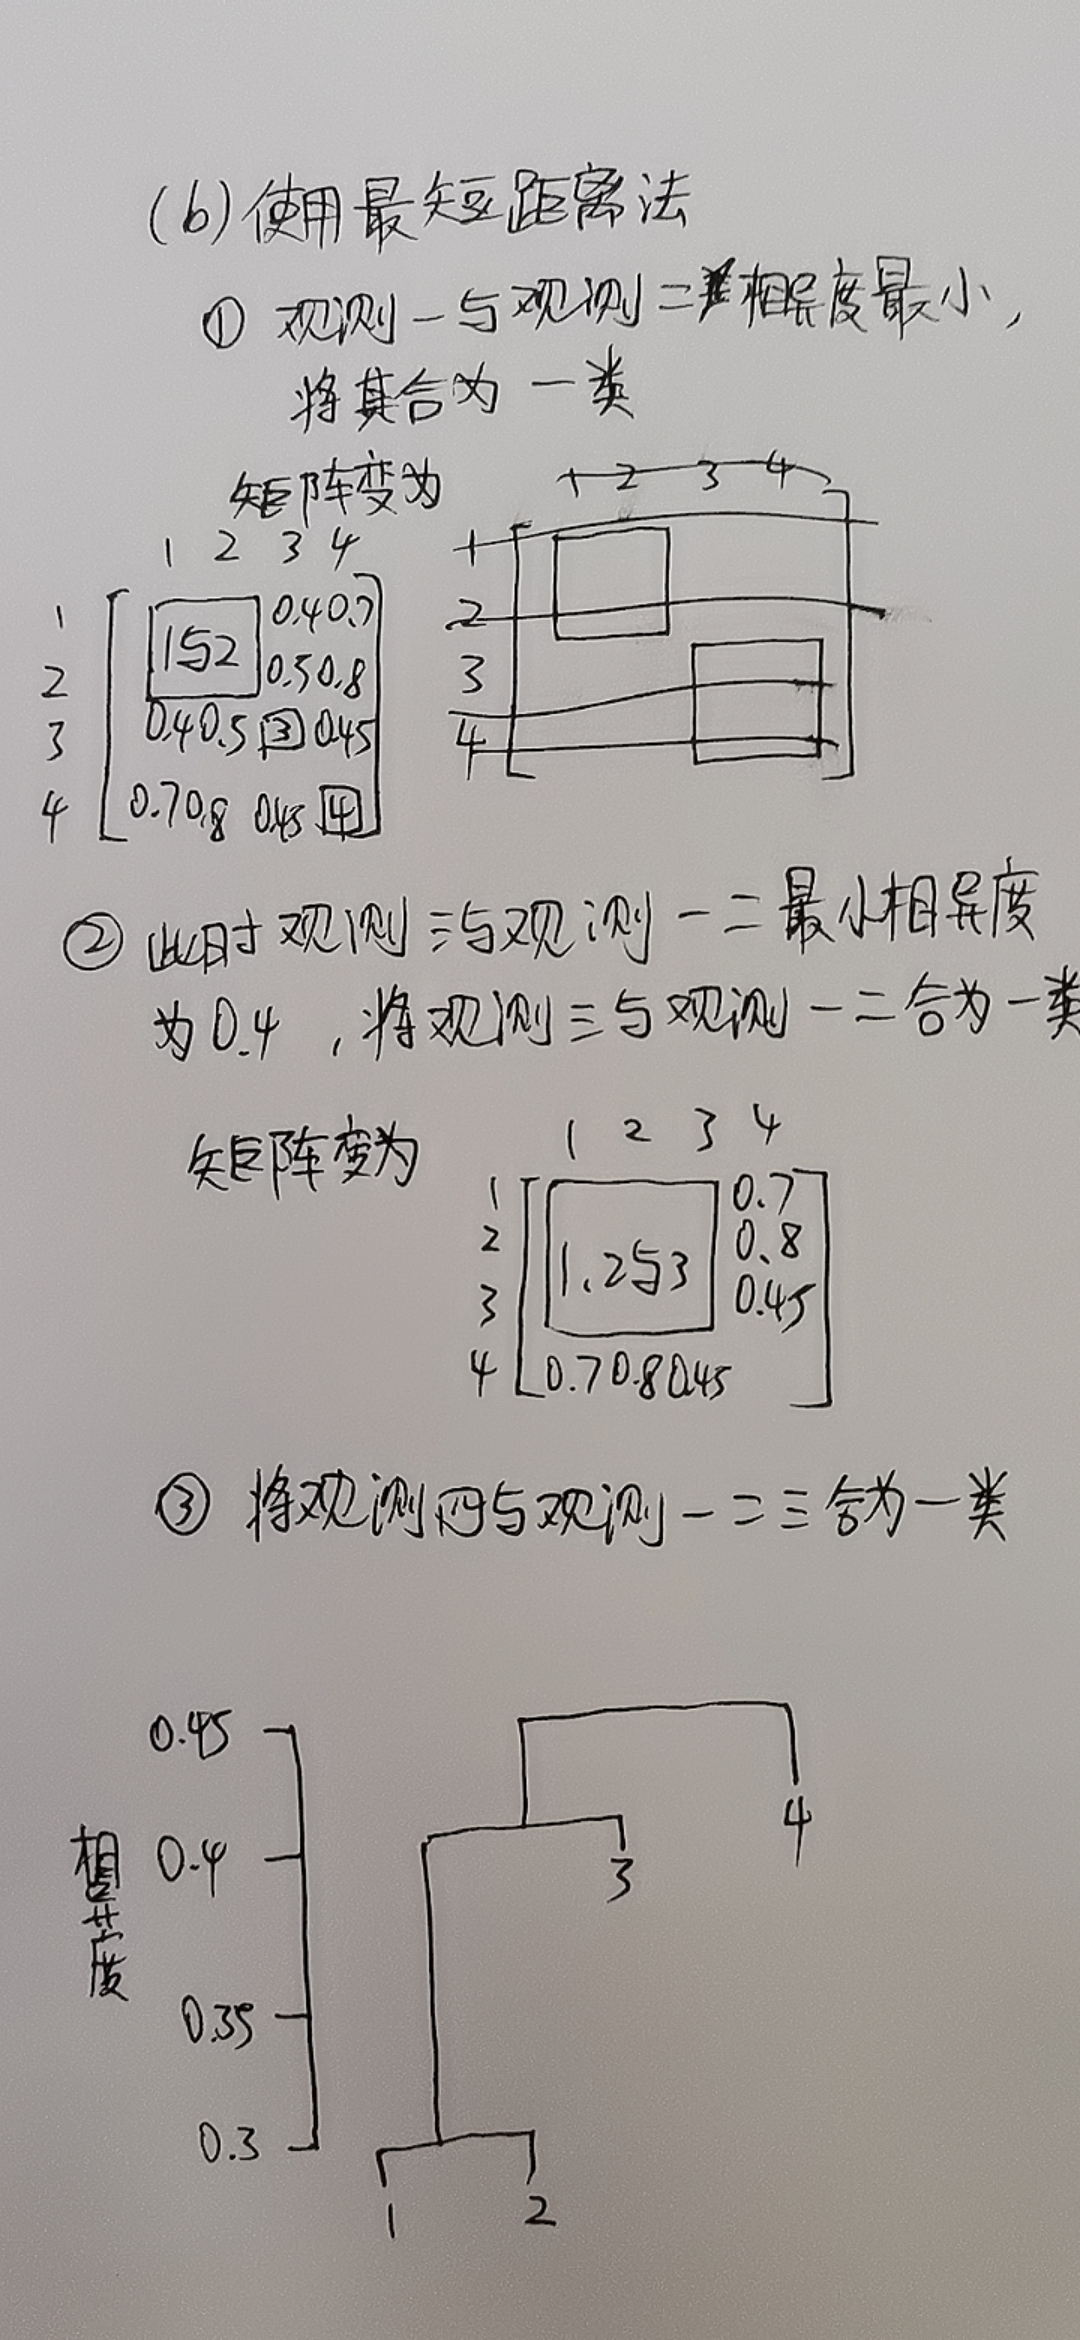 (b)使用最短距离法
① 观测一与观测二相异度最小,
将其合为一类
矩阵变为
1 2 3 4
1 2 3 4
1 1与2 0.4 0.7
2 0.5 0.8
3 0.4 0.5 3 0.45
4 0.7 0.8 0.45 4
1
2
3
4
② 此时观测三与观测一二最小相异度
为0.4,将观测三与观测一二合为一类
矩阵变为
1 2 3 4
1 0.7
2 1.2与3 0.8
3 0.45
4 0.7 0.8 0.45
③ 将观测四与观测一二三合为一类
0.45
0.4
0.35
0.3
相异度
4
3
1 2